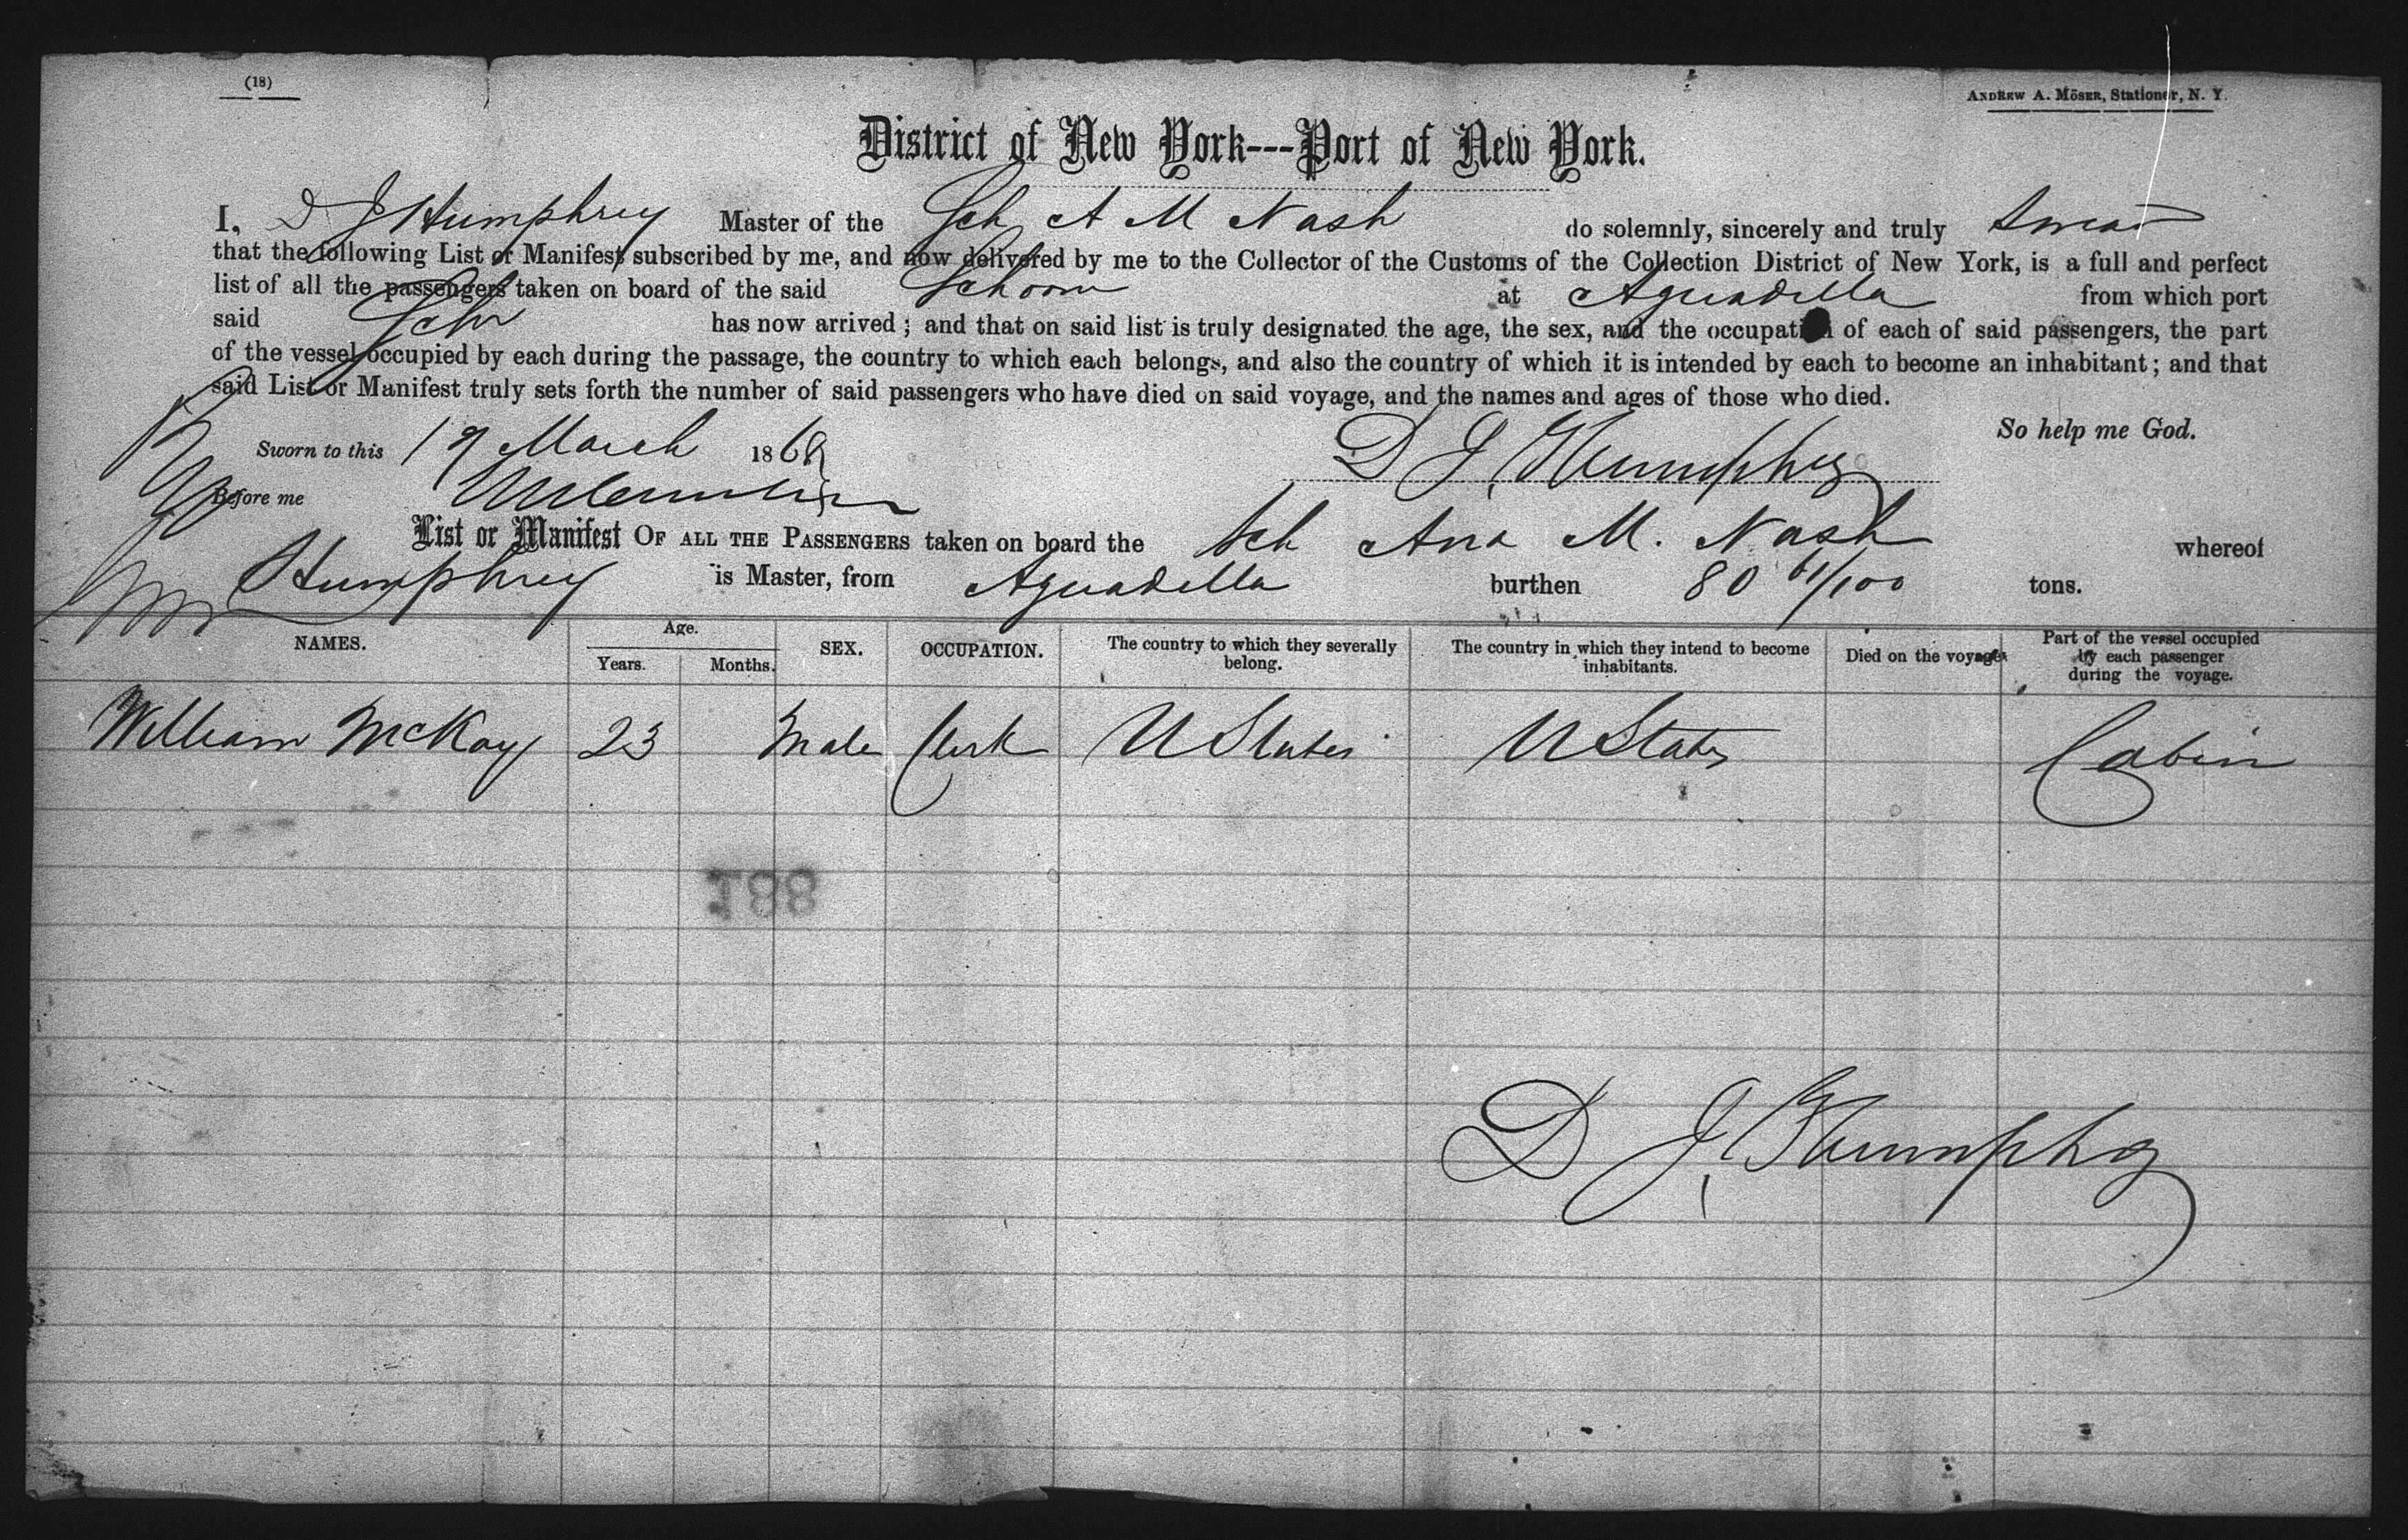 (18)
ANDREW A. MÖSER, Stationer, N. Y.
District of New York---Port of New York.
I, D J Humphrey Master of the Sch A M Nash do solemnly, sincerely and truly swear
that the following List or Manifest subscribed by me, and now delivered by me to the Collector of the Customs of the Collection District of New York, is a full and perfect
list of all the passengers taken on board of the said Schoon at Aguadilla from which port
said Schr has now arrived; and that on said list is truly designated the age, the sex, and the occupation of each of said passengers, the part
of the vessel occupied by each during the passage, the country to which each belongs, and also the country of which it is intended by each to become an inhabitant; and that
said List or Manifest truly sets forth the number of said passengers who have died on said voyage, and the names and ages of those who died.
So help me God.
Sworn to this 19 March 1869 D J Humphrey
Before me
List or Manifest OF ALL THE PASSENGERS taken on board the Sch Ana M. Nash whereof
Humphrey is Master, from Aguadella burthen 80 61/100 tons.
NAMES. Age. Years. Months. SEX. OCCUPATION. The country to which they severally belong. The country in which they intend to become inhabitants. Died on the voyage. Part of the vessel occupied by each passenger during the voyage.
William McKay 23 Male Clerk U States U States Cabin
188
D J Humphrey